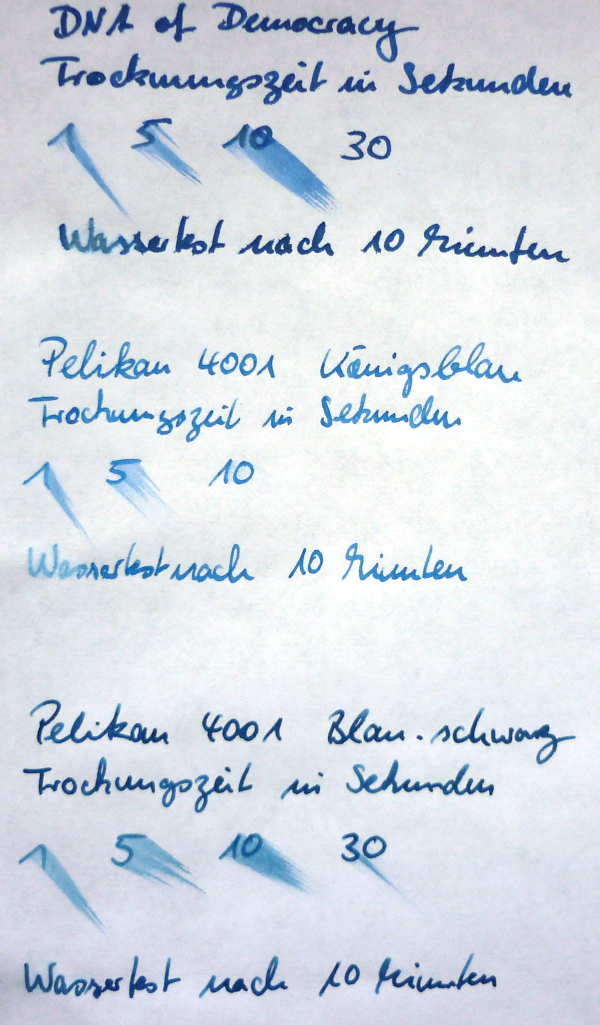 DNA of Democracy
Trocknungszeit in Sekunden
1 5 10 30
Wassertest nach 10 Minuten
Pelikan 4001 Königsblau
Trocknungszeit in Sekunden
1 5 10
Wassertest nach 10 Minuten
Pelikan 4001 Blau-schwarz
Trocknungszeit in Sekunden
1 5 10 30
Wassertest nach 10 Minuten